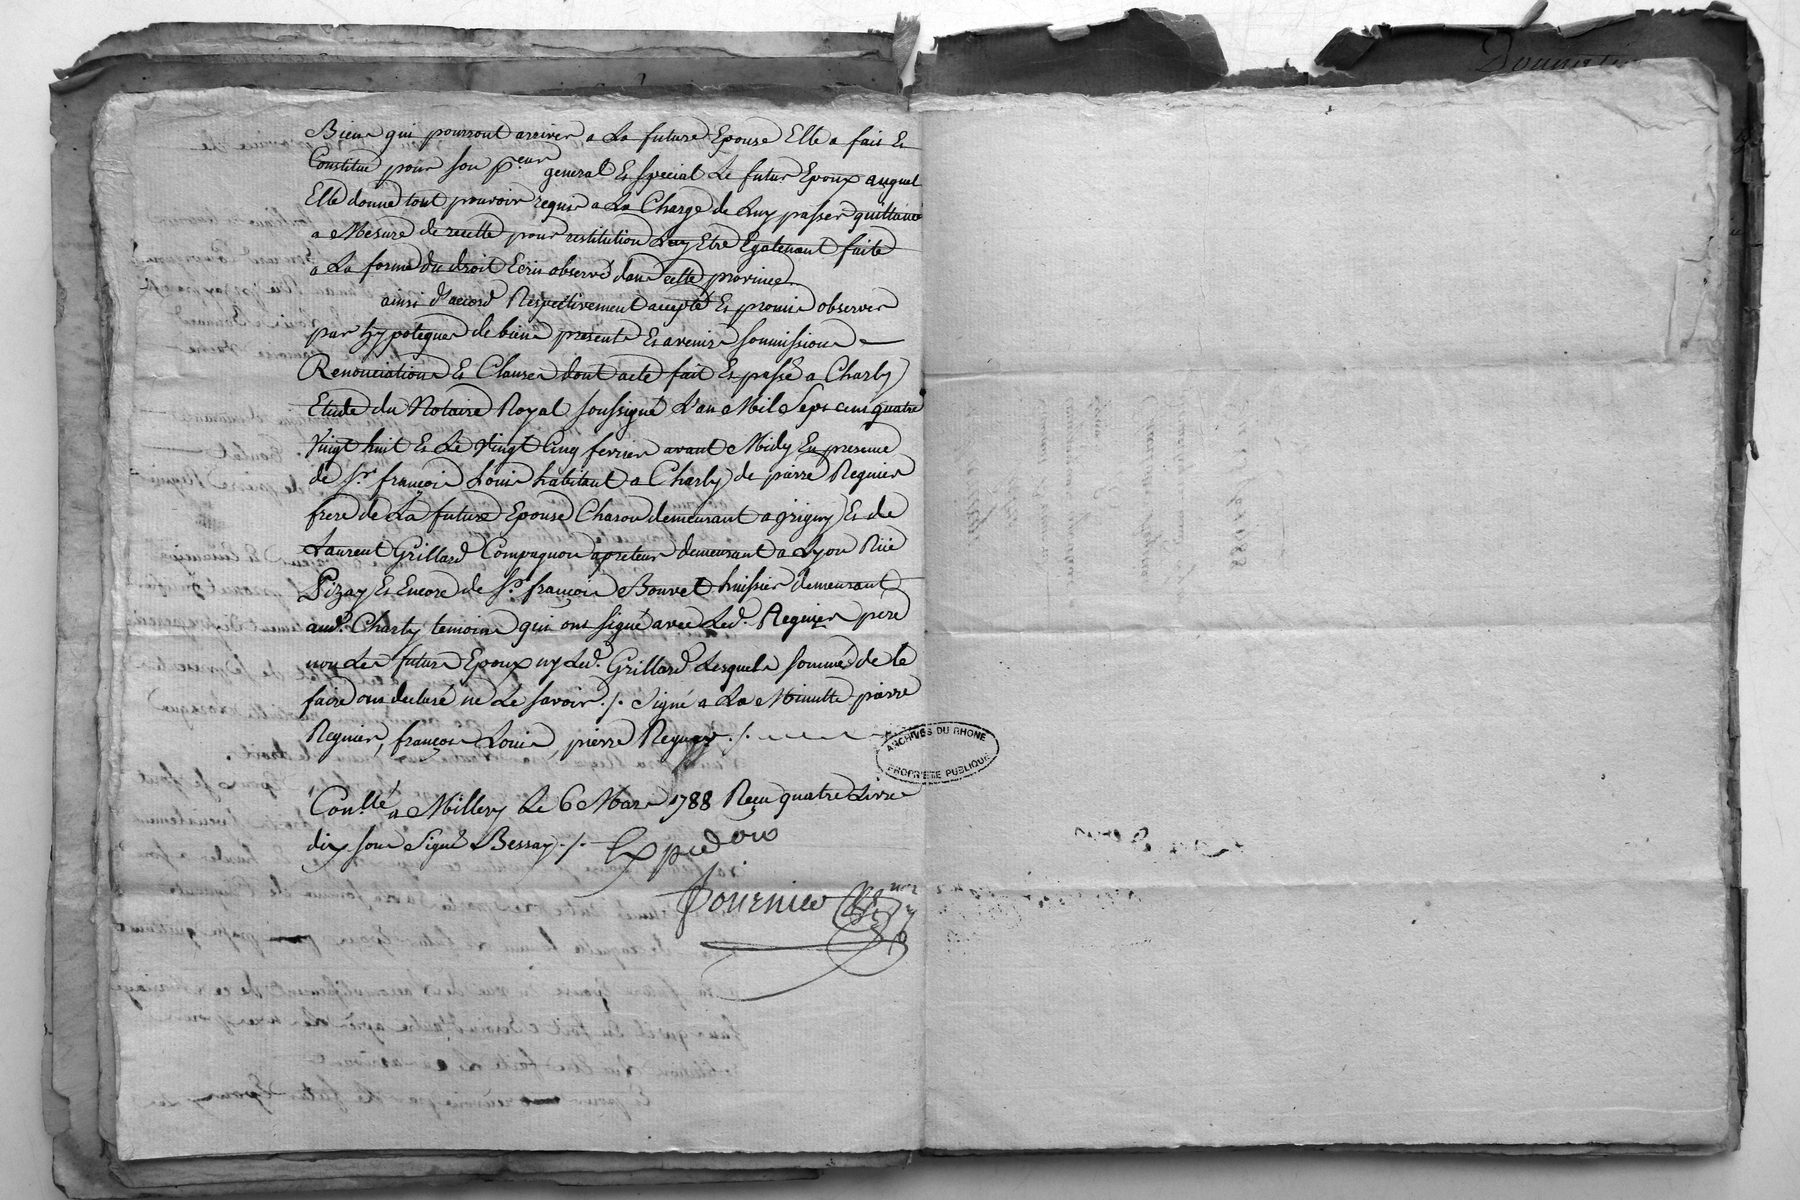 Biens qui pourront arriver a La future Epouse Elle a fait Et
Constitué pour son p.eur general Et special Le futur Epoux auquel
Elle donne tout pouvoir requis a La Charge de Luy passer quittance
a Mesure de recette pour restitution Luy Etre Egalement faite
a La forme du droit Ecrit observé dans cette province
ainsi d'accord Respectivement accepté Et promis observer
par hypoteques de biens presents Et avenir soumissions
Renonciations Et Clauses dont acte fait Et passé a Charly
Etude du Notaire Royal soussigné L'an Mil Sept cent quatre
Vingt huit Et Le Vingt Cinq fevrier avant Midy En presence
de Sr. françois Louis habitant a Charly de pierre Regnier
frere de La future Epouse Charon demeurant a grigny Et de
Laurent Grillard Compagnon apreteur demeurant a Lyon Rüe
Pizay Et Encore de Sr. françois Bouvet huissier demeurant
aud. Charly temoins qui ont signé avec Led. Regnier pere
non Les futurs Epoux ny Led. Grillard Lesquels sommés de le
faire ont declaré ne Le savoir ./. Signé a La Minutte pierre
Regnier, françois Louis, pierre Regnier ./.
Conllé a Millery Le 6 Mars 1788 Reçu quatre Livres
dix sous Signé Bessay ./. Expedon
fournier
ARCHIVES DU RHONE
PROPRIETE PUBLIQUE